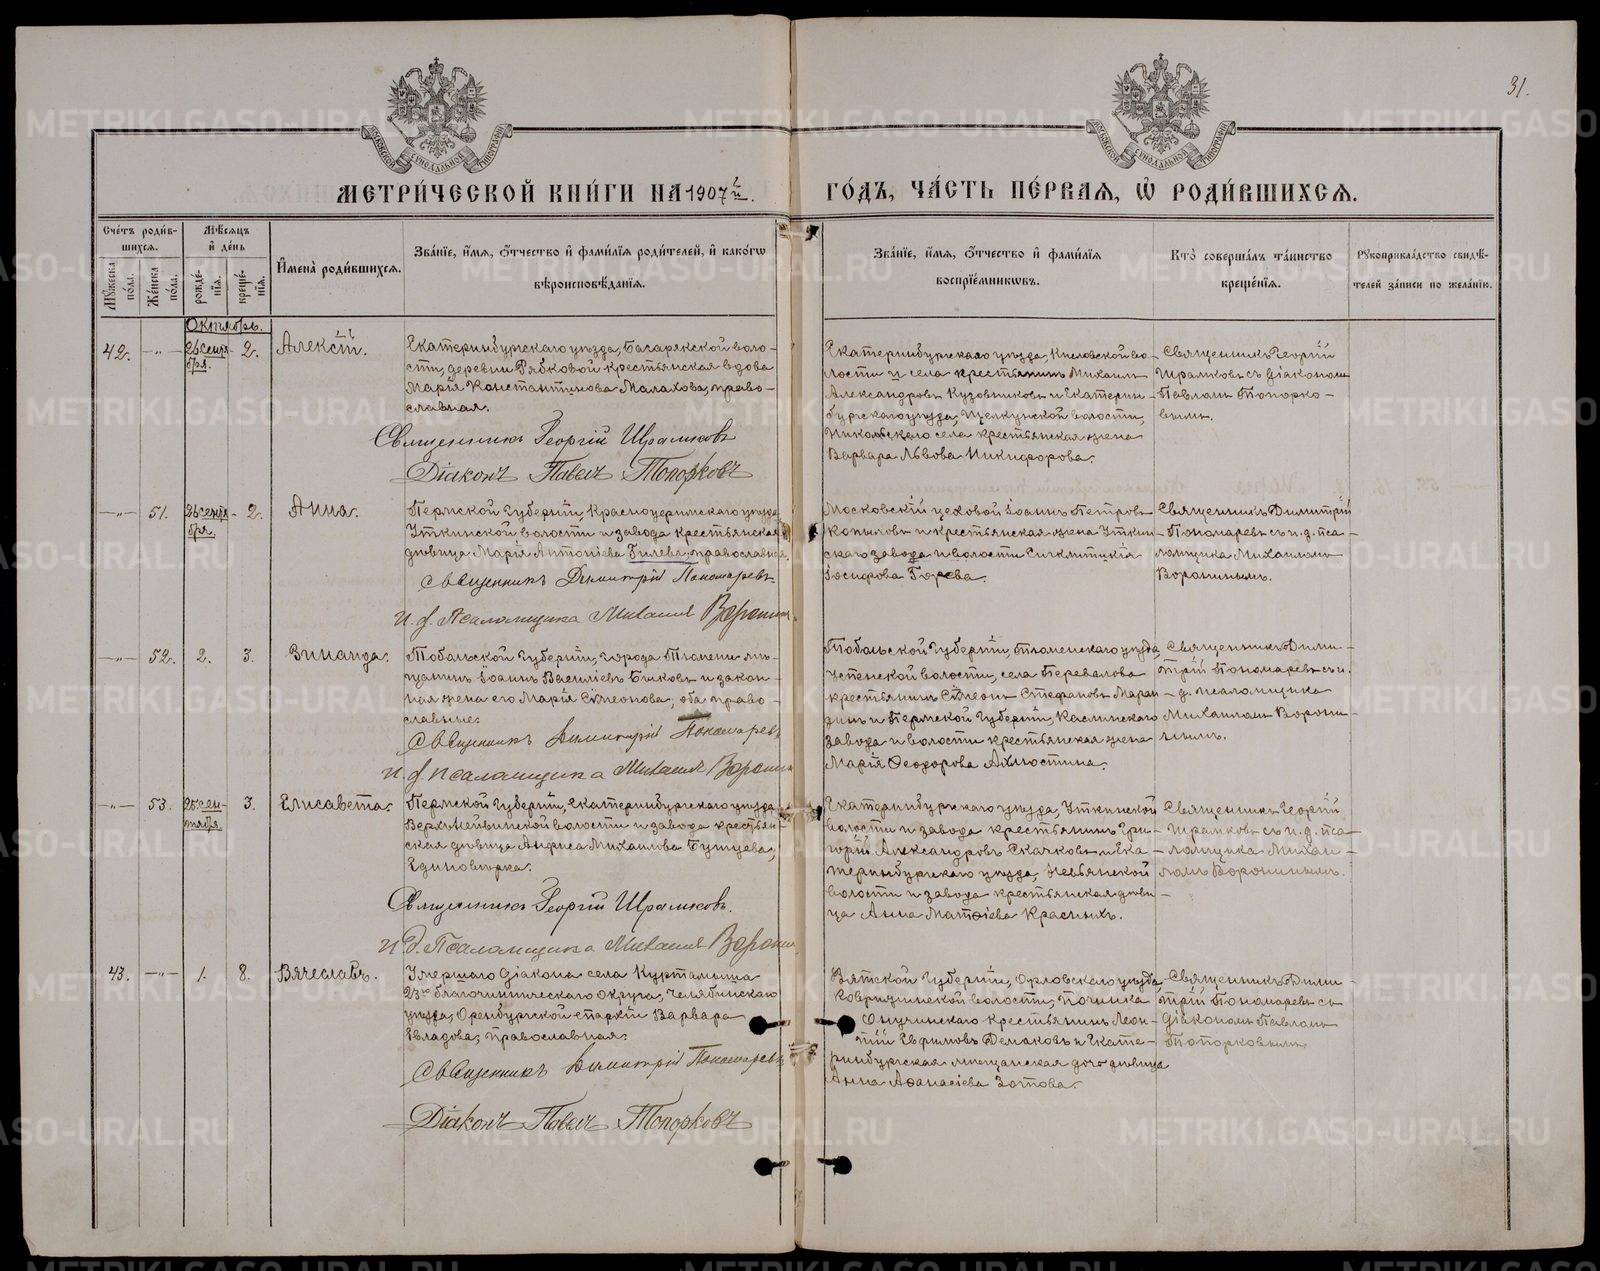 31.
МЕТРИ́ЧЕСКОЙ КНИ́ГИ НА 1907й.
ГО́ДЪ, ЧА́СТЬ ПЕ́РВАЯ, Ѡ҆ РОДИ́ВШИХСЯ.
Сче́тъ роди́в-
шихся.
Мꙋ́жеска по́ла.
Же́нска по́ла.
Мѣ́сяцъ и҆ де́нь
рожде́нїя.
креще́нїя.
И҆мена̀ роди́вшихся.
Зва́нїе, и҆́мя, ѻ҆́тчество и҆ фамилїя роди́телей, и҆ како́гѡ
вѣроисповѣ́данїя.
Зва́нїе, и҆́мя, ѻ҆́тчество и҆ фамилїя
воспрїе́мникѡвъ.
Кто̀ соверша́лъ та́инство
креще́нїя.
Рꙋкоприкла́дство свидѣ́-
телей за́писи по жела́нїю.
Октябрь.
42. —"— 26 сентя-
бря. 2. Алексѣй.
Екатеринбургскаго уѣзда, Багарякской воло-
сти, деревни Рябковой крестьянская вдова
Марія Константинова Малахова, право-
славная.
Священникъ Георгій Шрамковъ
Діаконъ Павелъ Топорковъ
Екатеринбургскаго уѣзда, Кисловской во-
лости и села крестьянинъ Михаилъ
Александровъ Кузовниковъ и Екатерин-
бургскаго уѣзда, Щелкунской волости,
Никольскаго села крестьянская жена
Варвара Львова Никифорова.
Священникъ Георгій
Шрамковъ съ діакономъ
Павломъ Топорко-
вымъ.
—"— 51. 26 сентя-
бря. 2. Анна.
Пермской губерніи, Красноуфимскаго уѣзда
Уткинской волости и завода крестьянская
дѣвица Марія Антоніева Гилева, православная.
Священникъ Димитрій Пономаревъ
И. д. псаломщика Михаилъ Воронинъ
Московскій цеховой Іоаннъ Петровъ
Копыловъ и крестьянская жена Уткин-
скаго завода и волости Синклитикія
Іосифова Горева.
Священникъ Димитрій
Пономаревъ съ и. д. пса-
ломщика Михаиломъ
Воронинымъ.
—"— 52. 2. 3. Зинаида.
Тобольской губерніи, города Тюмени мѣ-
щанинъ Іоаннъ Василіевъ Быковъ и закон-
ная жена его Марія Симеонова, оба право-
славные.
Священникъ Димитрій Пономаревъ
и. д. псаломщика Михаилъ Воронинъ
Тобольской губерніи, Тюменскаго уѣзда,
Успенской волости, села Перевалова
крестьянинъ Симеонъ Стефановъ Маран-
динъ и Пермской губерніи, Каслинскаго
завода и волости крестьянская жена
Марія Ѳеодорова Ахлюстина.
Священникъ Дими-
трій Пономаревъ съ и.
д. псаломщика
Михаиломъ Ворони-
нымъ.
—"— 53. 26 сен-
тября. 3. Елисавета.
Пермской губерніи, Екатеринбургскаго уѣзда
Верхнейвинской волости и завода крестьян-
ская дѣвица Анфиса Михаилова Бунцева,
единовѣрка.
Священникъ Георгій Шрамковъ.
И. д. псаломщика Михаилъ Воронинъ
Екатеринбургскаго уѣзда, Уткинской
волости и завода крестьянинъ Гри-
горій Александровъ Скачковъ и Ека-
теринбургскаго уѣзда, Невьянской
волости и завода крестьянская дѣви-
ца Анна Матѳіева Красныхъ.
Священникъ Георгій
Шрамковъ съ и. д. пса-
ломщика Михаи-
ломъ Воронинымъ.
43. —"— 1. 8. Вячеславъ.
Умершаго діакона села Куртамыша
23го благочинническаго округа, Челябинскаго
уѣзда, Оренбургской епархіи Варвара
Евладова, православная.
Священникъ Димитрій Пономаревъ
Діаконъ Павелъ Топорковъ
Вятской губерніи, Орловскаго уѣзда,
Ковригинской волости, починка
Онучинскаго крестьянинъ Леон-
тій Евфимовъ Демаковъ и Екате-
ринбургская мѣщанская дочь дѣвица
Анна Аѳанасіева Зотова.
Священникъ Дими-
трій Пономаревъ съ
діакономъ Павломъ
Топорковымъ